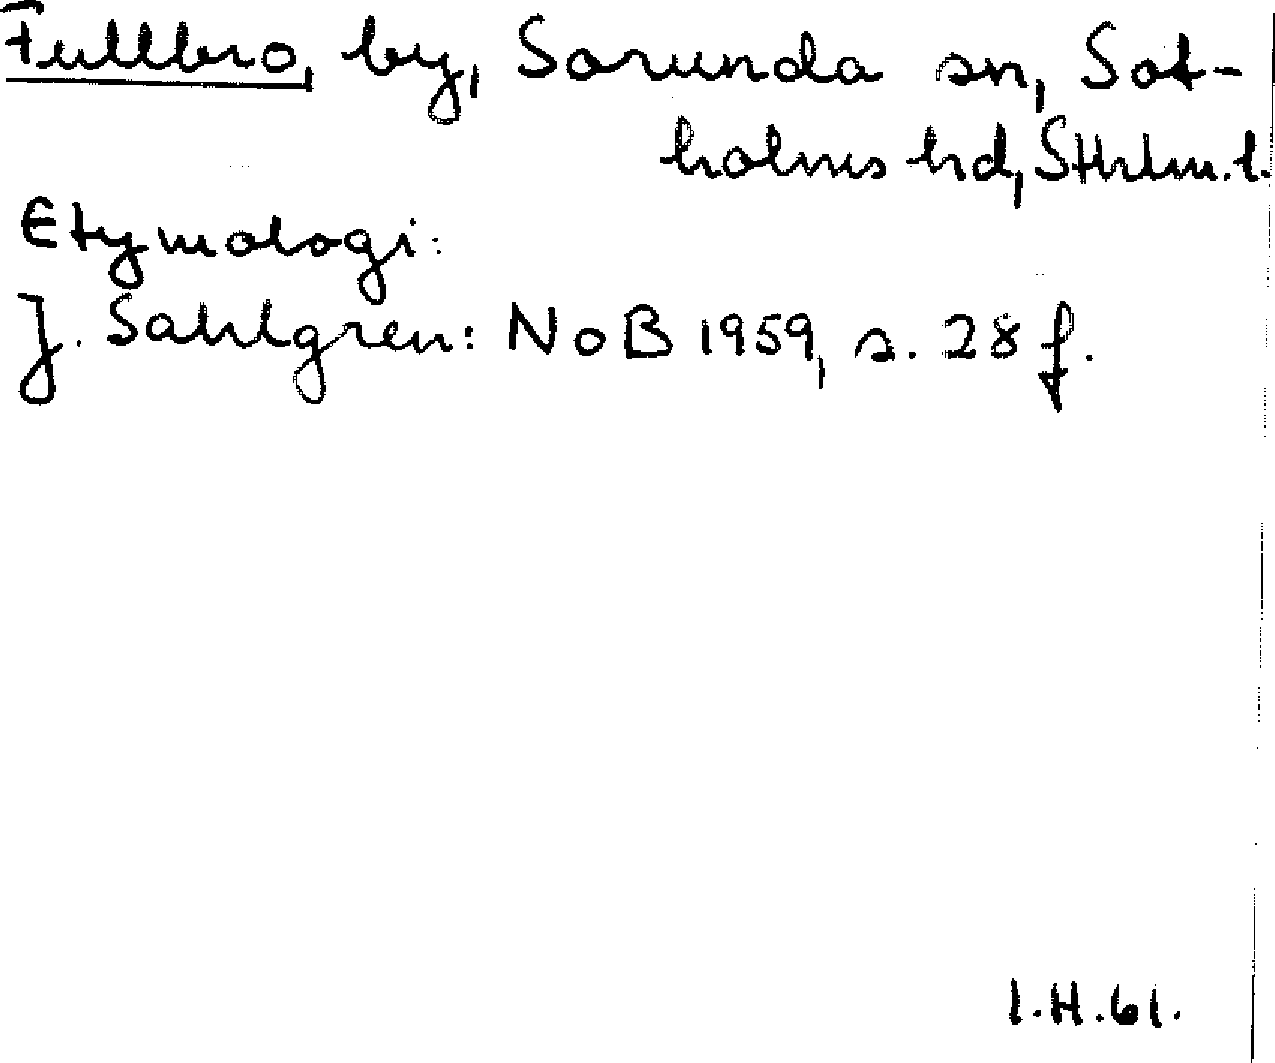 Fullbro, by, Sorunda sn, Sot-
holms hd, Sthlm. l.
Etymologi:
J. Sahlgren: NoB 1959, s. 28 f.
I.H.61.